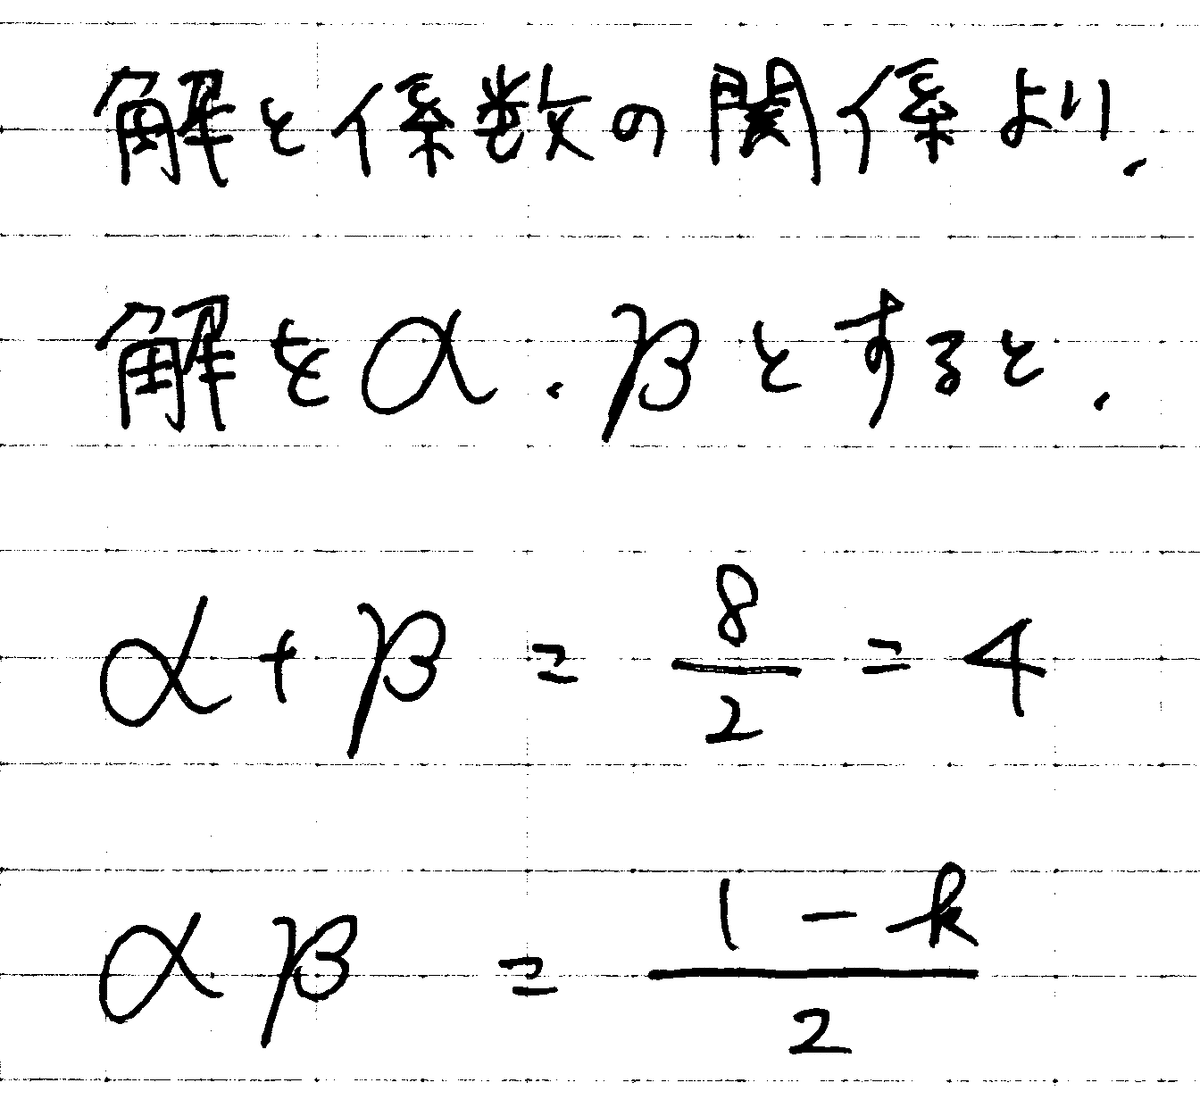 解と係数の関係より,
解をα,βとすると,
α+β = 8/2 = 4
αβ = (1-k)/2